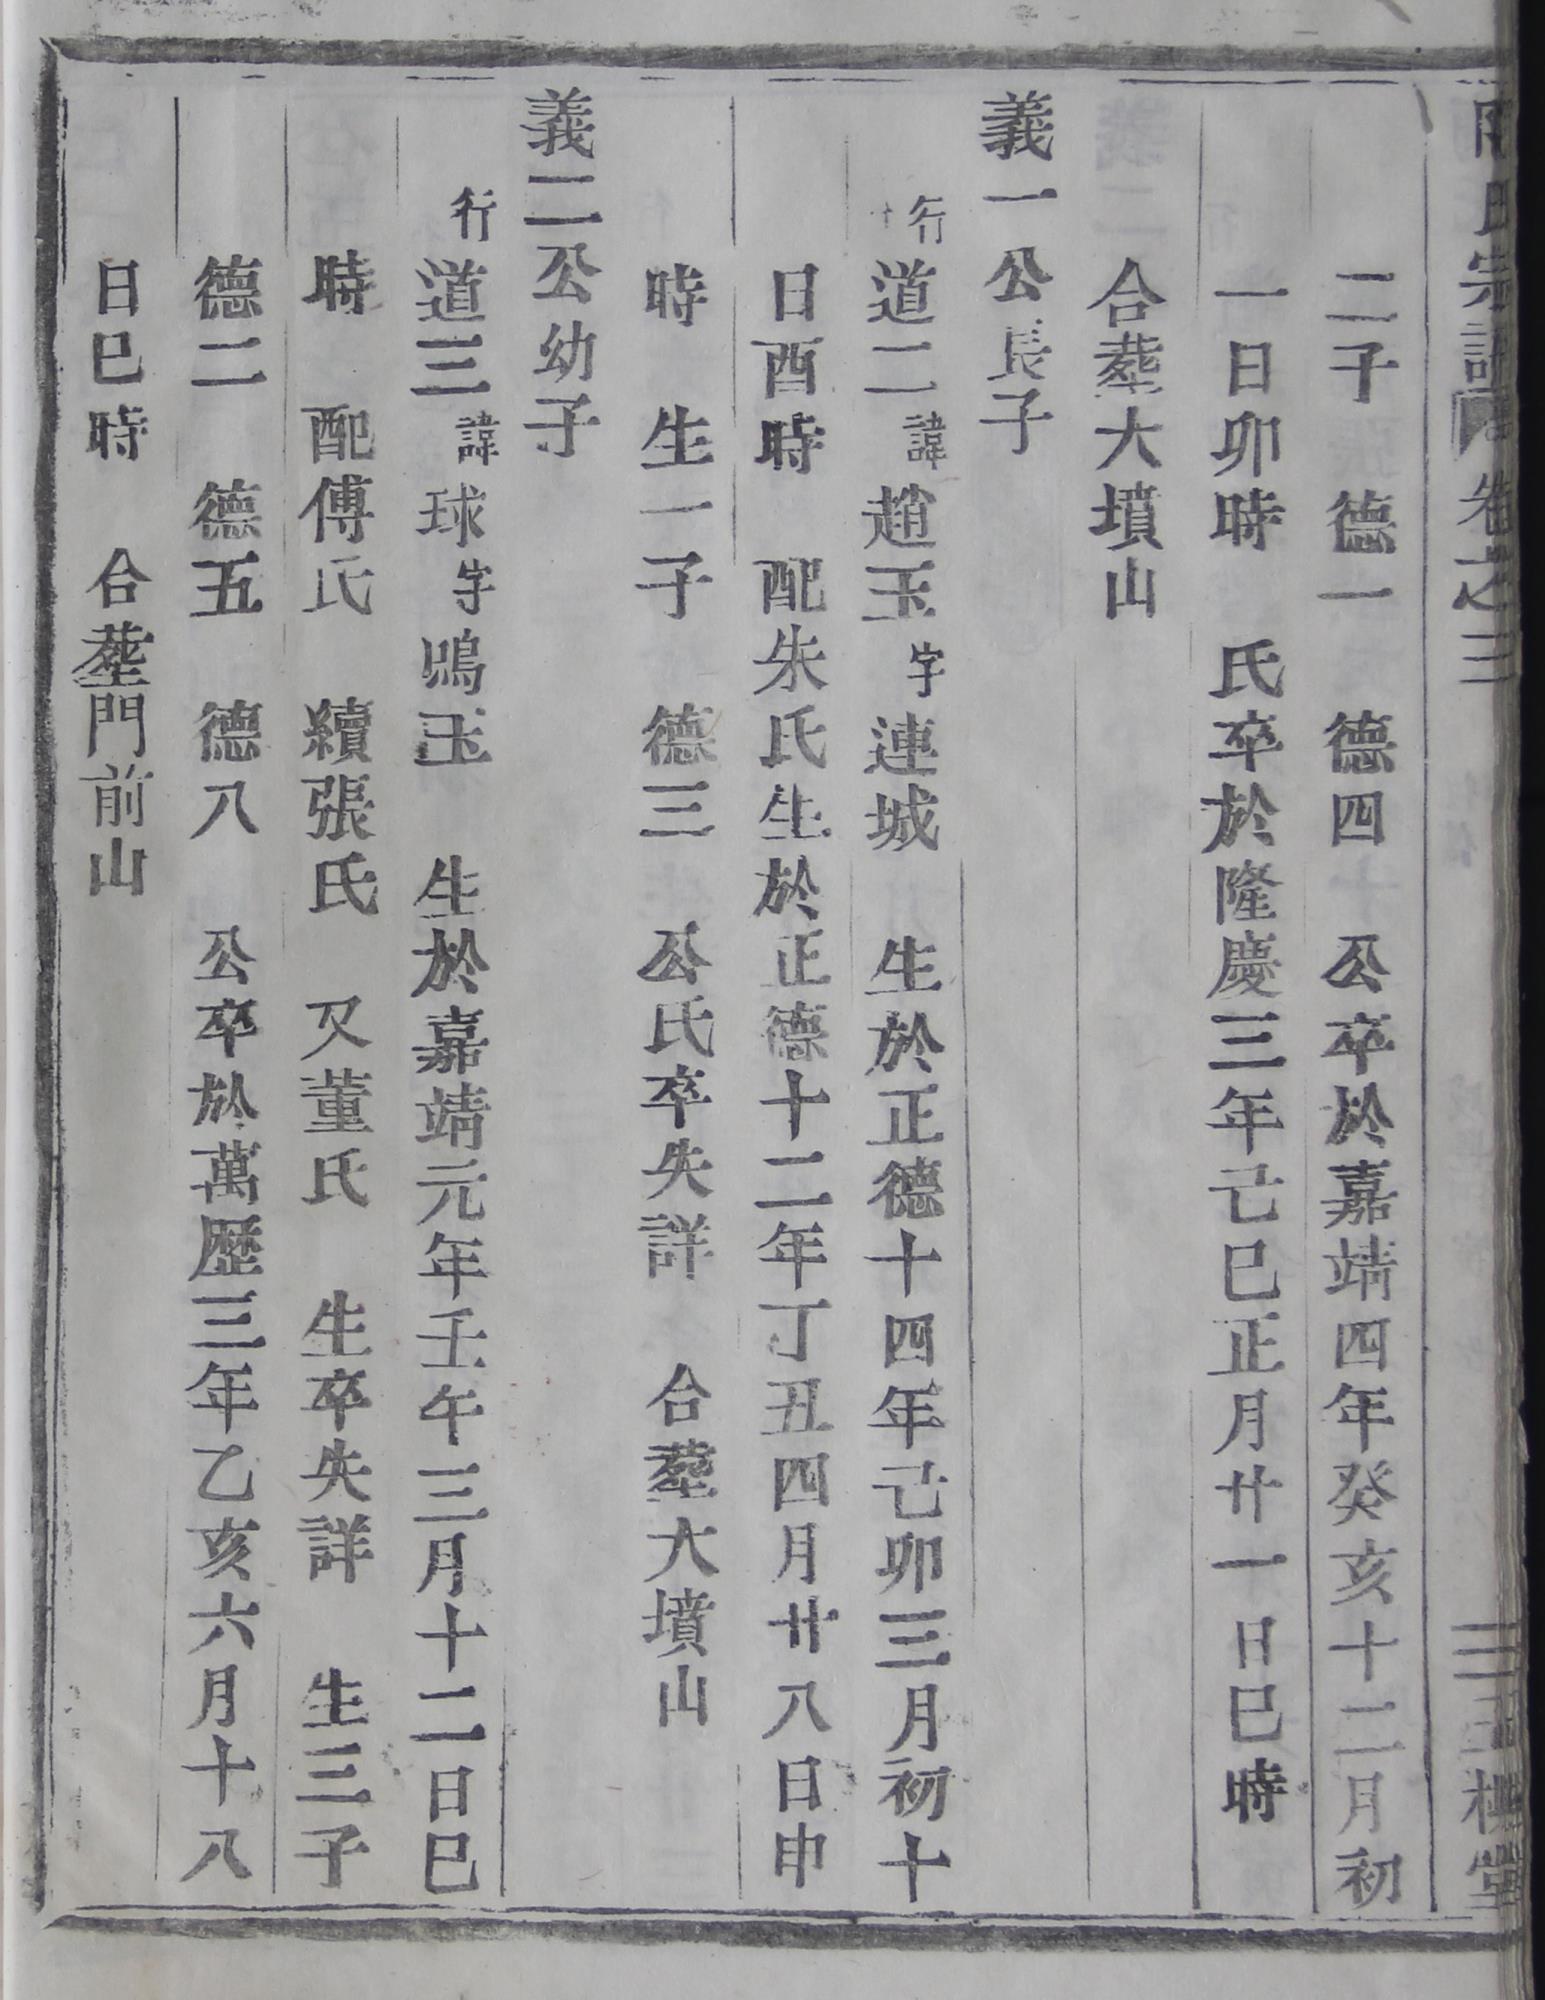 氏宗譜 卷之三 三 槐堂
二子 德一 德四 公卒於嘉靖四年癸亥十二月初
一日卯時 氏卒於隆慶三年己巳正月廿一日巳時
合塟大墳山
義一公長子
行道二諱趙玉字連城 生於正德十四年己卯三月初十
日酉時 配朱氏生於正德十二年丁丑四月廿八日申
時 生一子 德三 公氏卒失詳 合塟大墳山
義二公幼子
行道三諱球字鳴玉 生於嘉靖元年壬午三月十二日巳
時 配傅氏 續張氏 又董氏 生卒失詳 生三子
德二 德五 德八 公卒於萬歷三年乙亥六月十八
日巳時 合塟門前山